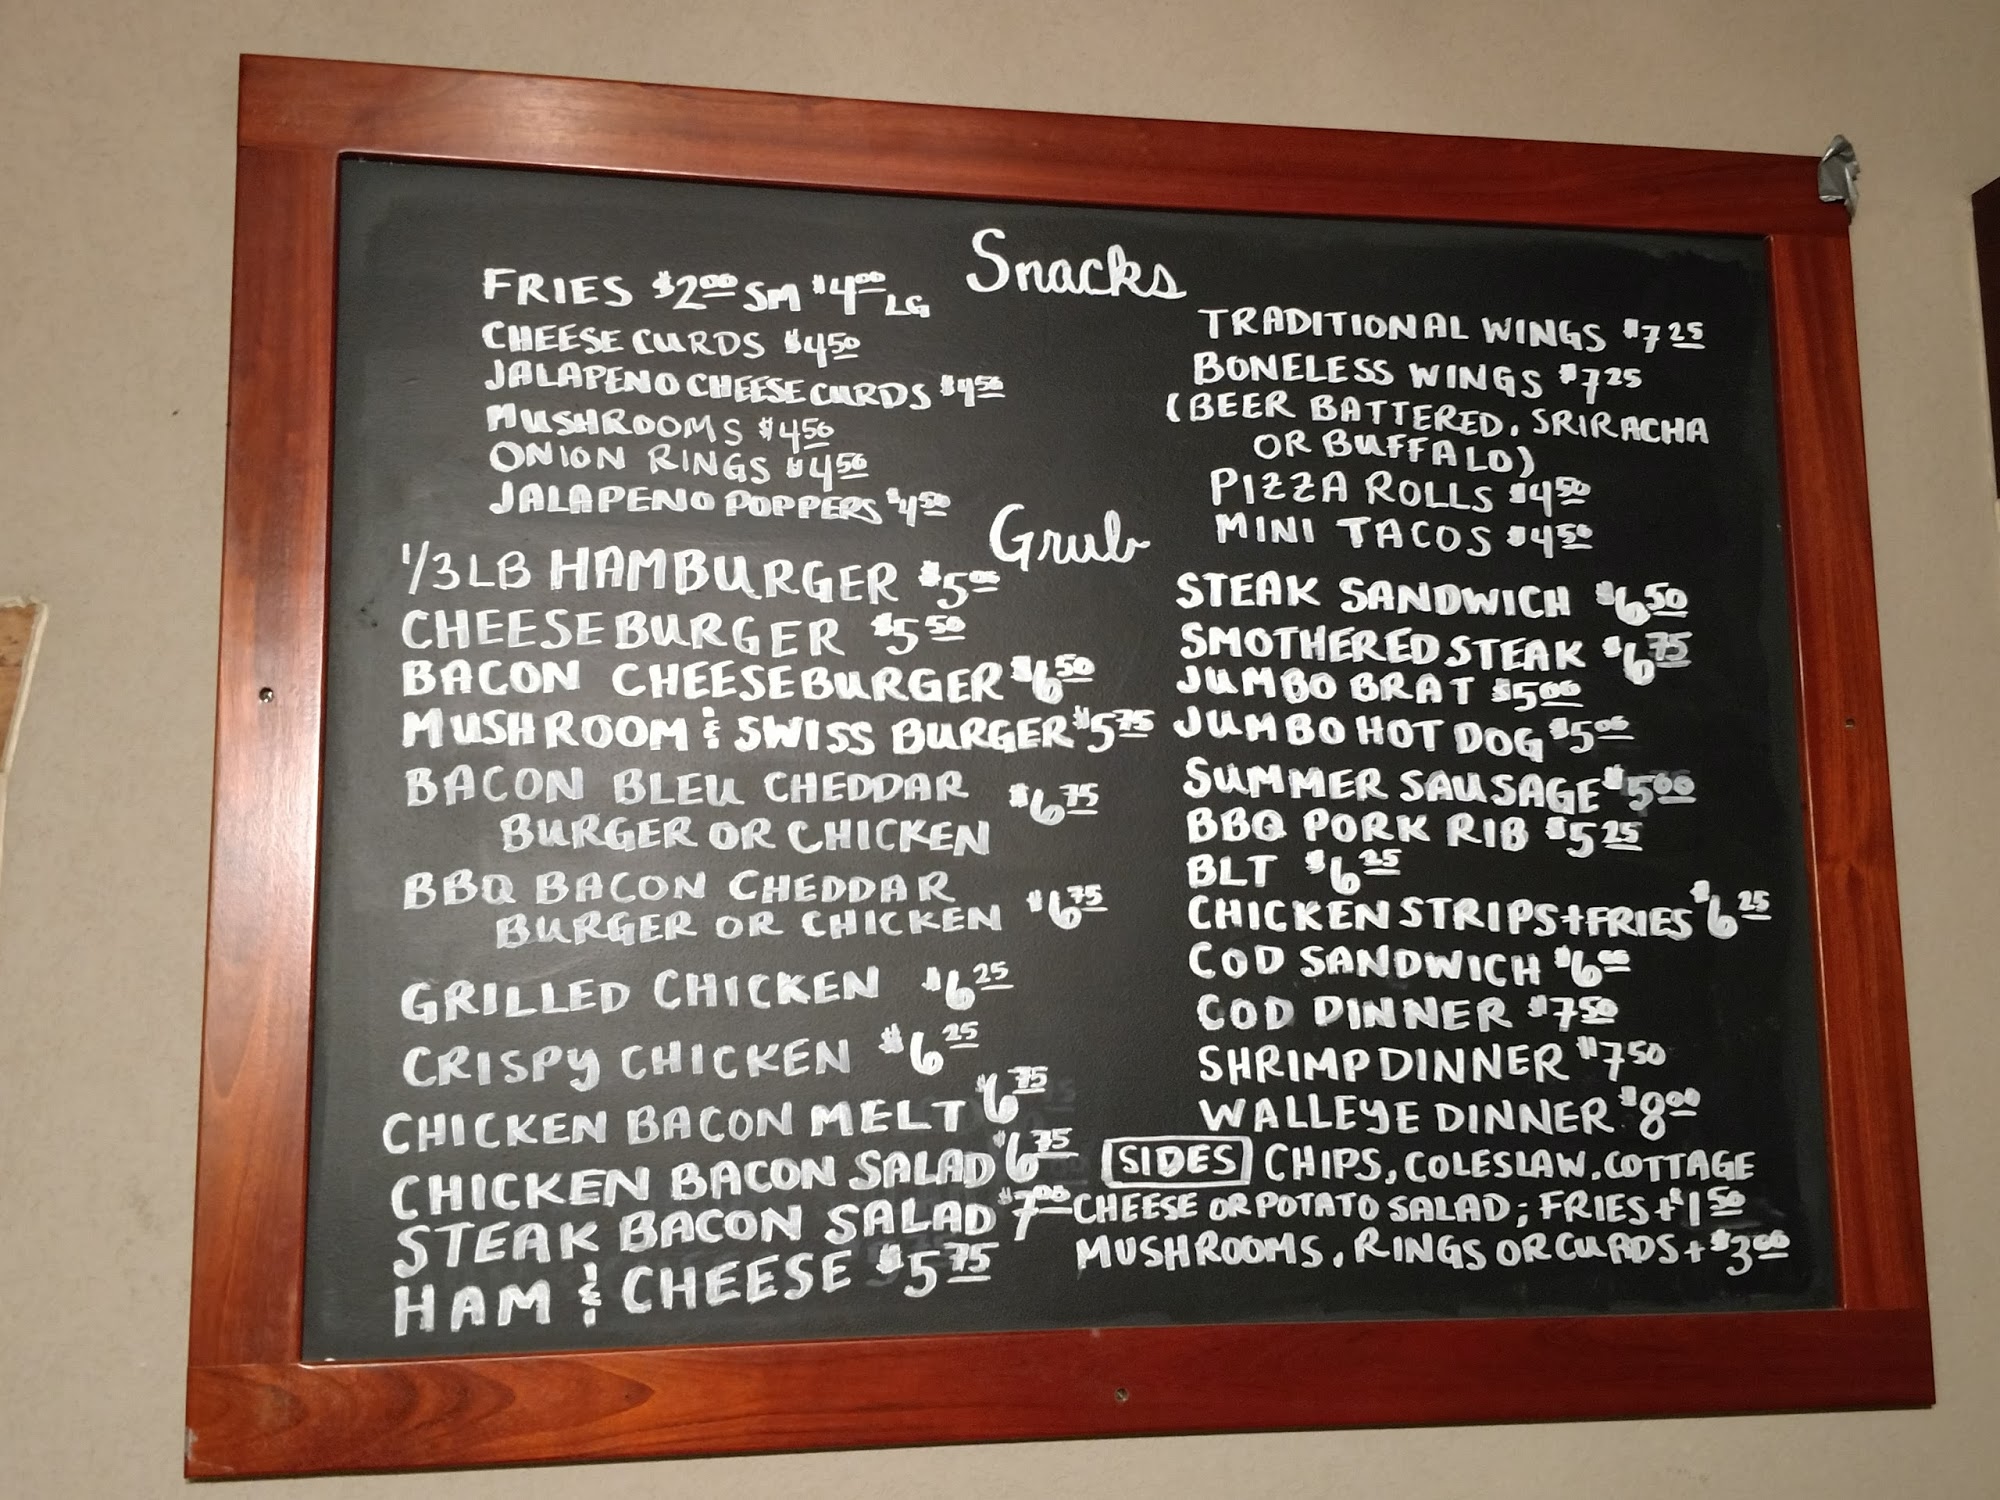 Snacks
FRIES $2.00 SM $4.00 LG
CHEESE CURDS $4.50
JALAPENO CHEESE CURDS $4.50
MUSHROOMS $4.50
ONION RINGS $4.50
JALAPENO POPPERS $4.50
TRADITIONAL WINGS $7.25
BONELESS WINGS $7.25
(BEER BATTERED, SRIRACHA
OR BUFFALO)
PIZZA ROLLS $4.50
MINI TACOS $4.50
Grub
1/3 LB HAMBURGER $5.00
CHEESEBURGER $5.50
BACON CHEESEBURGER $6.50
MUSHROOM & SWISS BURGER $5.75
BACON BLEU CHEDDAR
BURGER OR CHICKEN $6.75
BBQ BACON CHEDDAR
BURGER OR CHICKEN $6.75
GRILLED CHICKEN $6.25
CRISPY CHICKEN $6.25
CHICKEN BACON MELT $6.75
CHICKEN BACON SALAD $6.75
STEAK BACON SALAD $7.00
HAM & CHEESE $5.75
STEAK SANDWICH $6.50
SMOTHERED STEAK $6.75
JUMBO BRAT $5.00
JUMBO HOT DOG $5.00
SUMMER SAUSAGE $5.00
BBQ PORK RIB $5.25
BLT $6.25
CHICKEN STRIPS + FRIES $6.25
COD SANDWICH $6.00
COD DINNER $7.50
SHRIMP DINNER $7.50
WALLEYE DINNER $8.00
SIDES CHIPS, COLESLAW, COTTAGE
CHEESE OR POTATO SALAD; FRIES + $1.50
MUSHROOMS, RINGS OR CURDS + $3.00